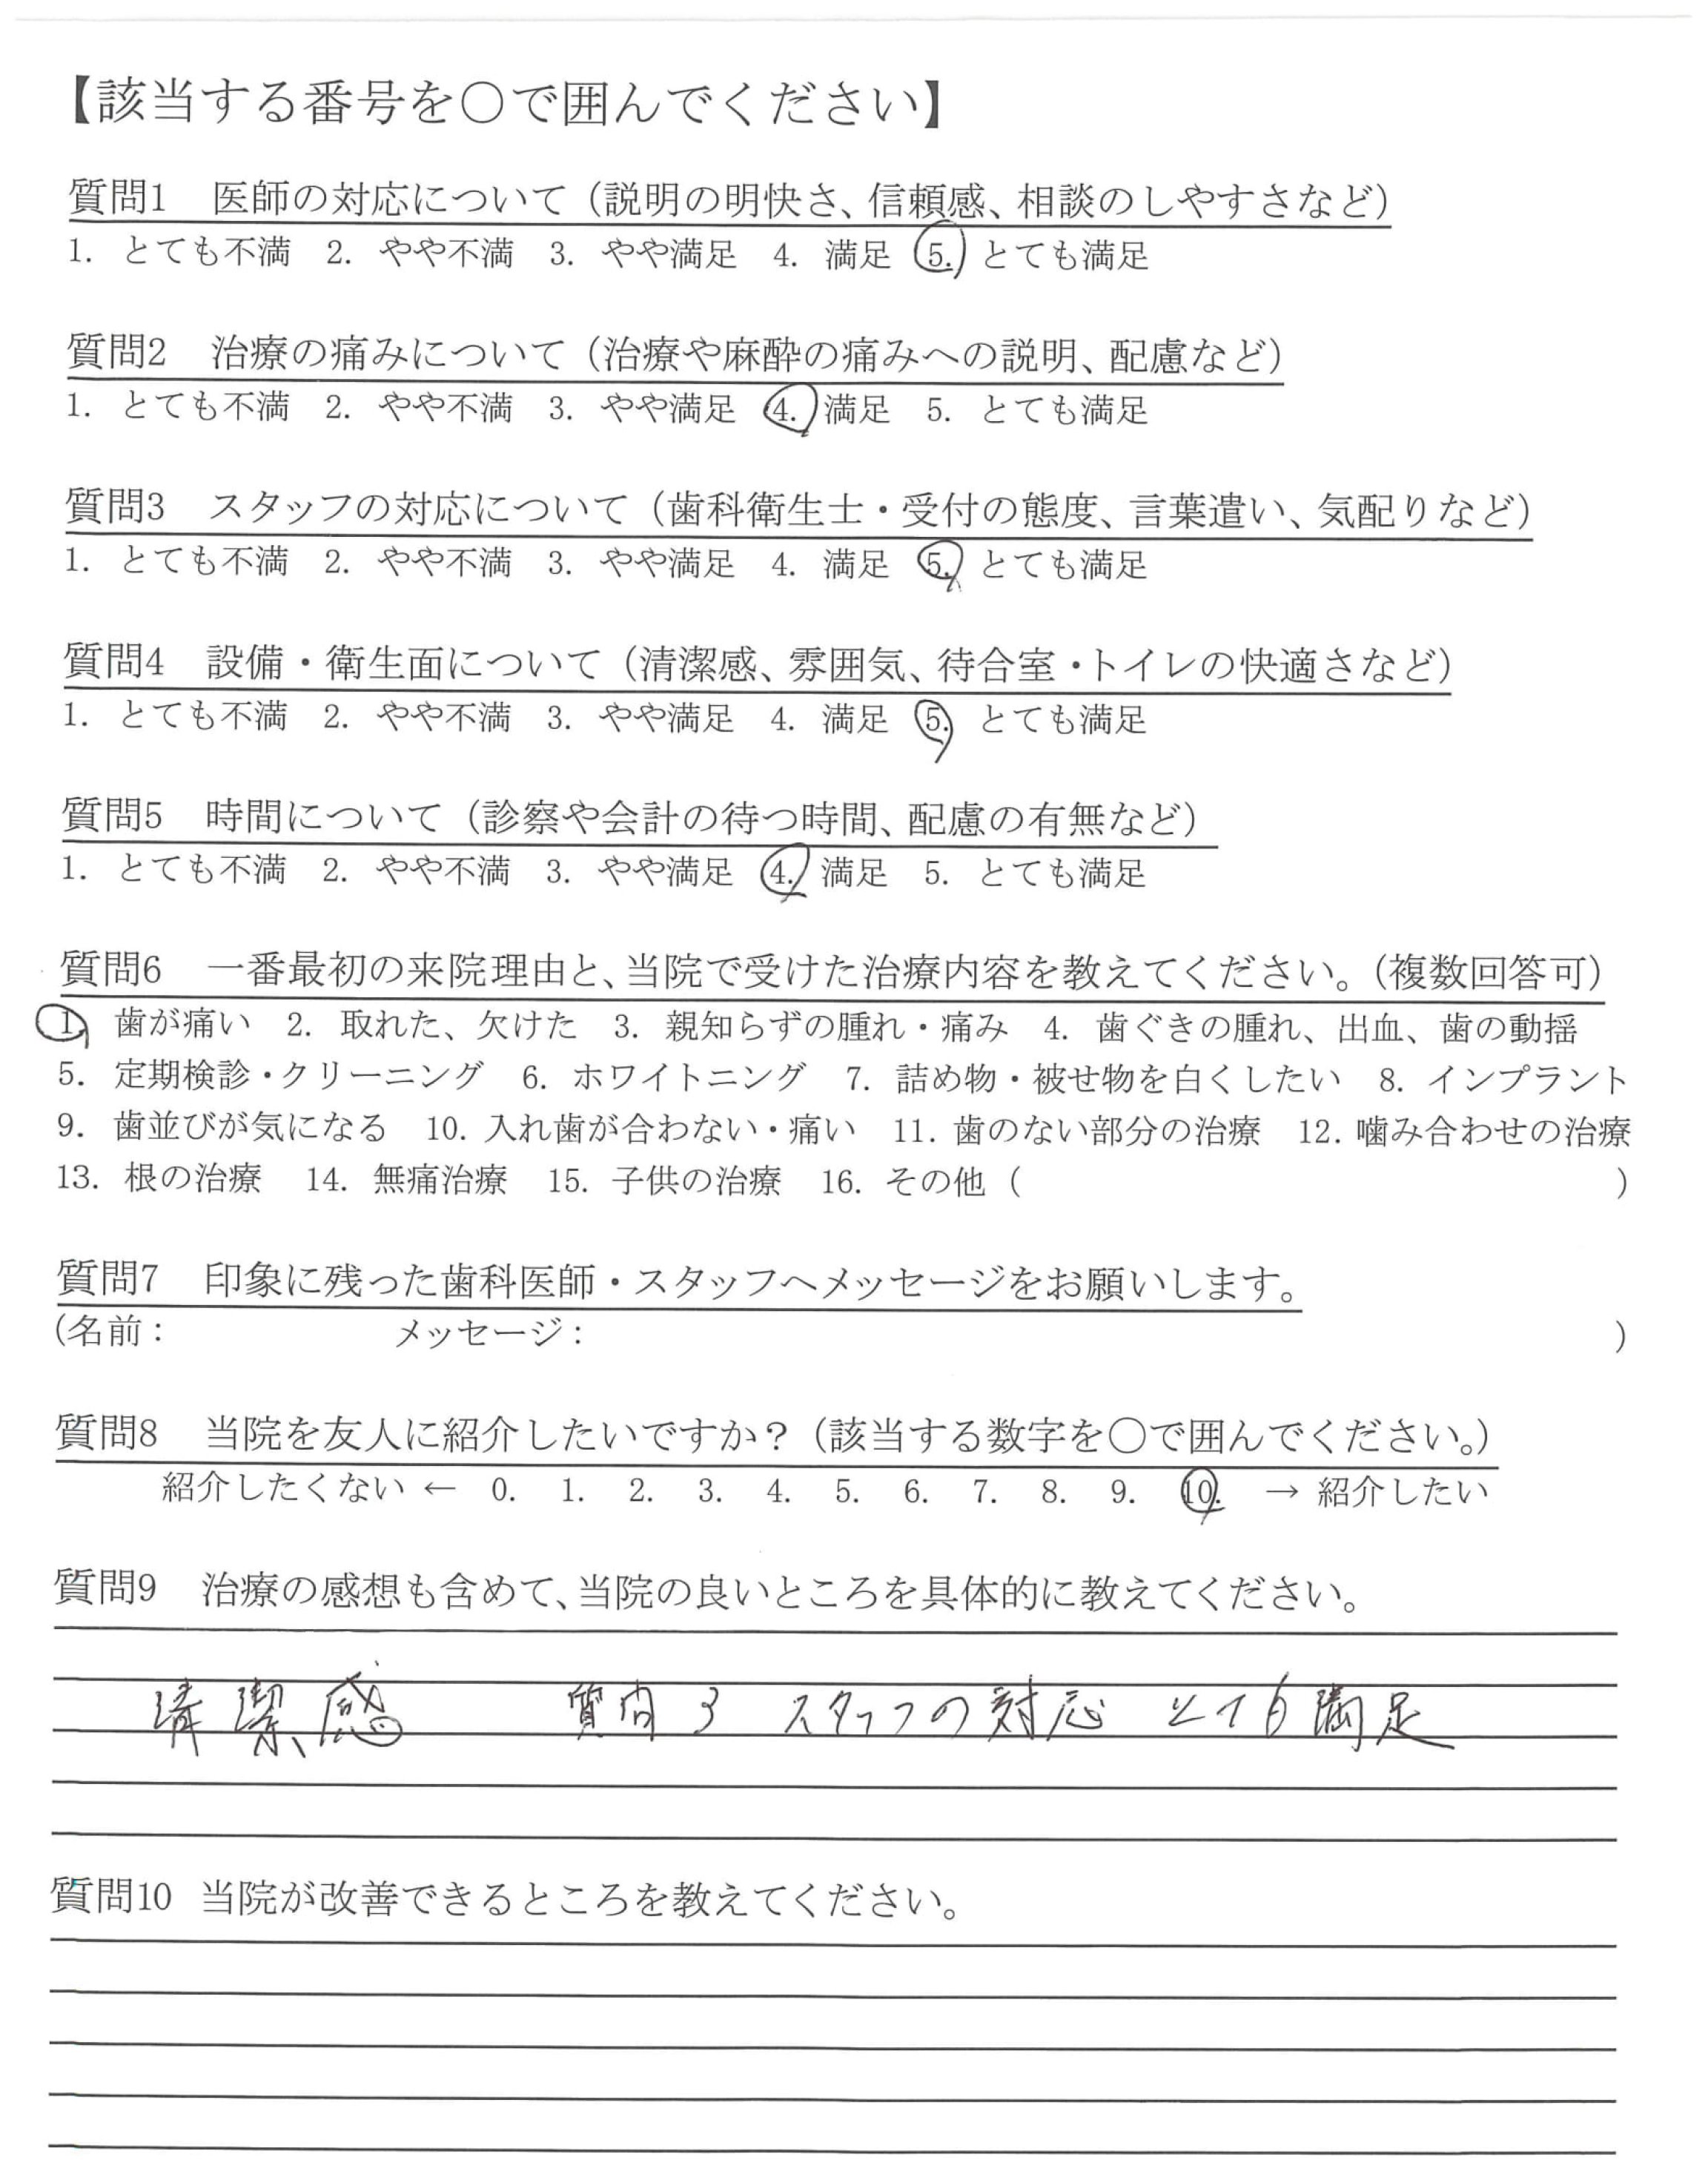 【該当する番号を〇で囲んでください】
質問1 医師の対応について（説明の明快さ、信頼感、相談のしやすさなど）
1. とても不満 2. やや不満 3. やや満足 4. 満足 5. とても満足
質問2 治療の痛みについて（治療や麻酔の痛みへの説明、配慮など）
1. とても不満 2. やや不満 3. やや満足 4. 満足 5. とても満足
質問3 スタッフの対応について（歯科衛生士・受付の態度、言葉遣い、気配りなど）
1. とても不満 2. やや不満 3. やや満足 4. 満足 5. とても満足
質問4 設備・衛生面について（清潔感、雰囲気、待合室・トイレの快適さなど）
1. とても不満 2. やや不満 3. やや満足 4. 満足 5. とても満足
質問5 時間について（診察や会計の待つ時間、配慮の有無など）
1. とても不満 2. やや不満 3. やや満足 4. 満足 5. とても満足
質問6 一番最初の来院理由と、当院で受けた治療内容を教えてください。（複数回答可）
1. 歯が痛い 2. 取れた、欠けた 3. 親知らずの腫れ・痛み 4. 歯ぐきの腫れ、出血、歯の動揺
5. 定期検診・クリーニング 6. ホワイトニング 7. 詰め物・被せ物を白くしたい 8. インプラント
9. 歯並びが気になる 10. 入れ歯が合わない・痛い 11. 歯のない部分の治療 12. 噛み合わせの治療
13. 根の治療 14. 無痛治療 15. 子供の治療 16. その他（ ）
質問7 印象に残った歯科医師・スタッフへメッセージをお願いします。
（名前： メッセージ： ）
質問8 当院を友人に紹介したいですか？（該当する数字を〇で囲んでください。）
紹介したくない ← 0. 1. 2. 3. 4. 5. 6. 7. 8. 9. 10. → 紹介したい
質問9 治療の感想も含めて、当院の良いところを具体的に教えてください。
清潔感 質問3 スタッフの対応 とても満足
質問10 当院が改善できるところを教えてください。